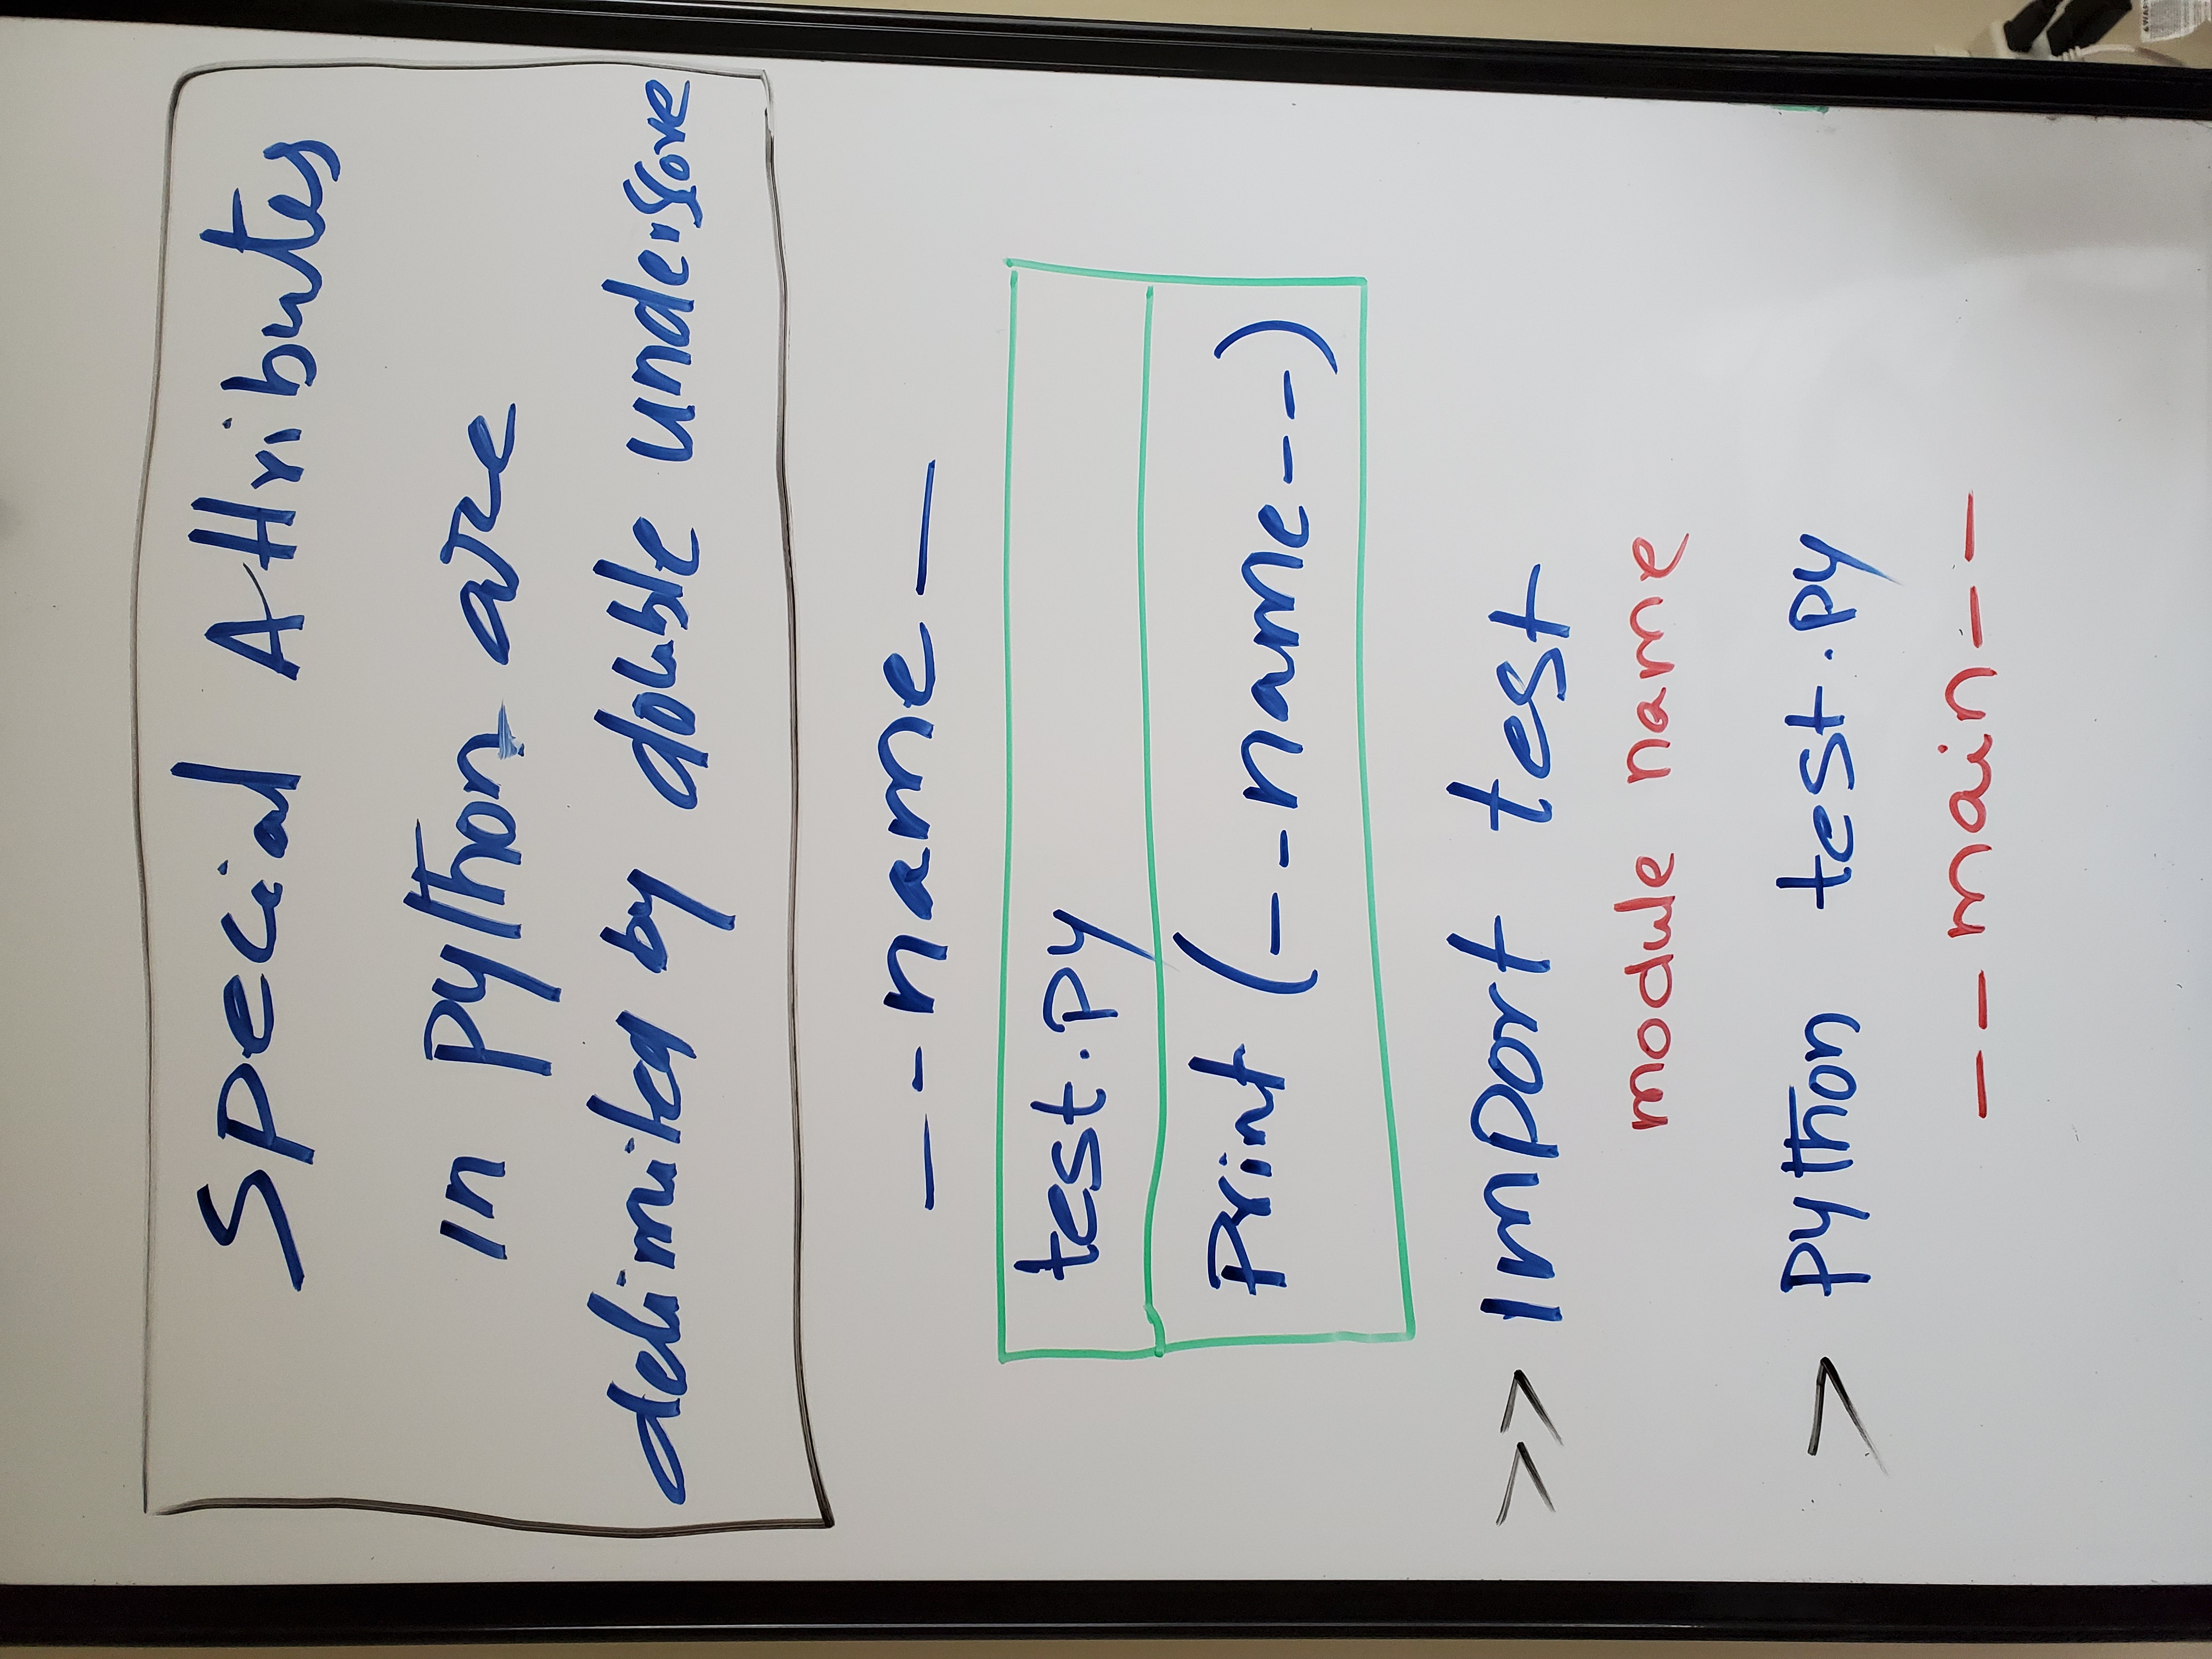 Special Attributes
in python are
delimited by double underscore
__name__
test.py
Print (__name__)
>> import test
module name
> python test.py
__main__